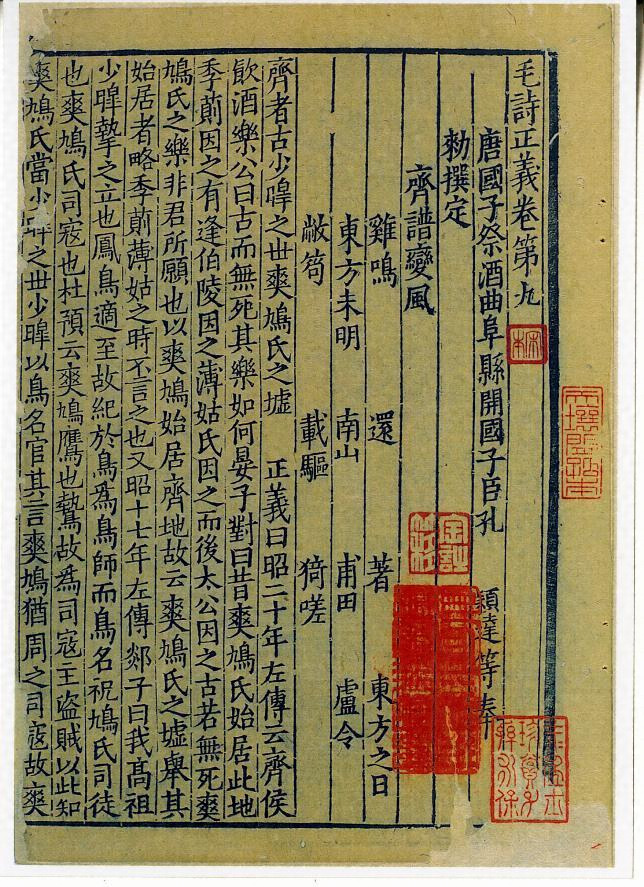 毛詩正義卷第九
唐國子祭酒曲阜縣開國子臣孔 穎達等奉
勑撰定
齊譜變風
雞鳴 還 著 東方之日
東方未明 南山 甫田 盧令
敝笱 載驅 猗嗟
齊者古少皞之世爽鳩氏之墟 正義曰昭二十年左傳云齊侯
飲酒樂公曰古而無死其樂如何晏子對曰昔爽鳩氏始居此地
季萴因之有逢伯陵因之薄姑氏因之而後太公因之古若無死爽
鳩氏之樂非君所願也以爽鳩始居齊地故云爽鳩氏之墟舉其
始居者略季萴薄姑之時不言之也又昭十七年左傳郯子曰我髙祖
少皞摯之立也鳳鳥適至故紀於鳥為鳥師而鳥名祝鳩氏司徒
也爽鳩氏司寇也杜預云爽鳩鷹也鷙故為司寇主盜賊以此知
爽鳩氏當少皞之世少皞以鳥名官其言爽鳩猶周之司寇故爽
宋本